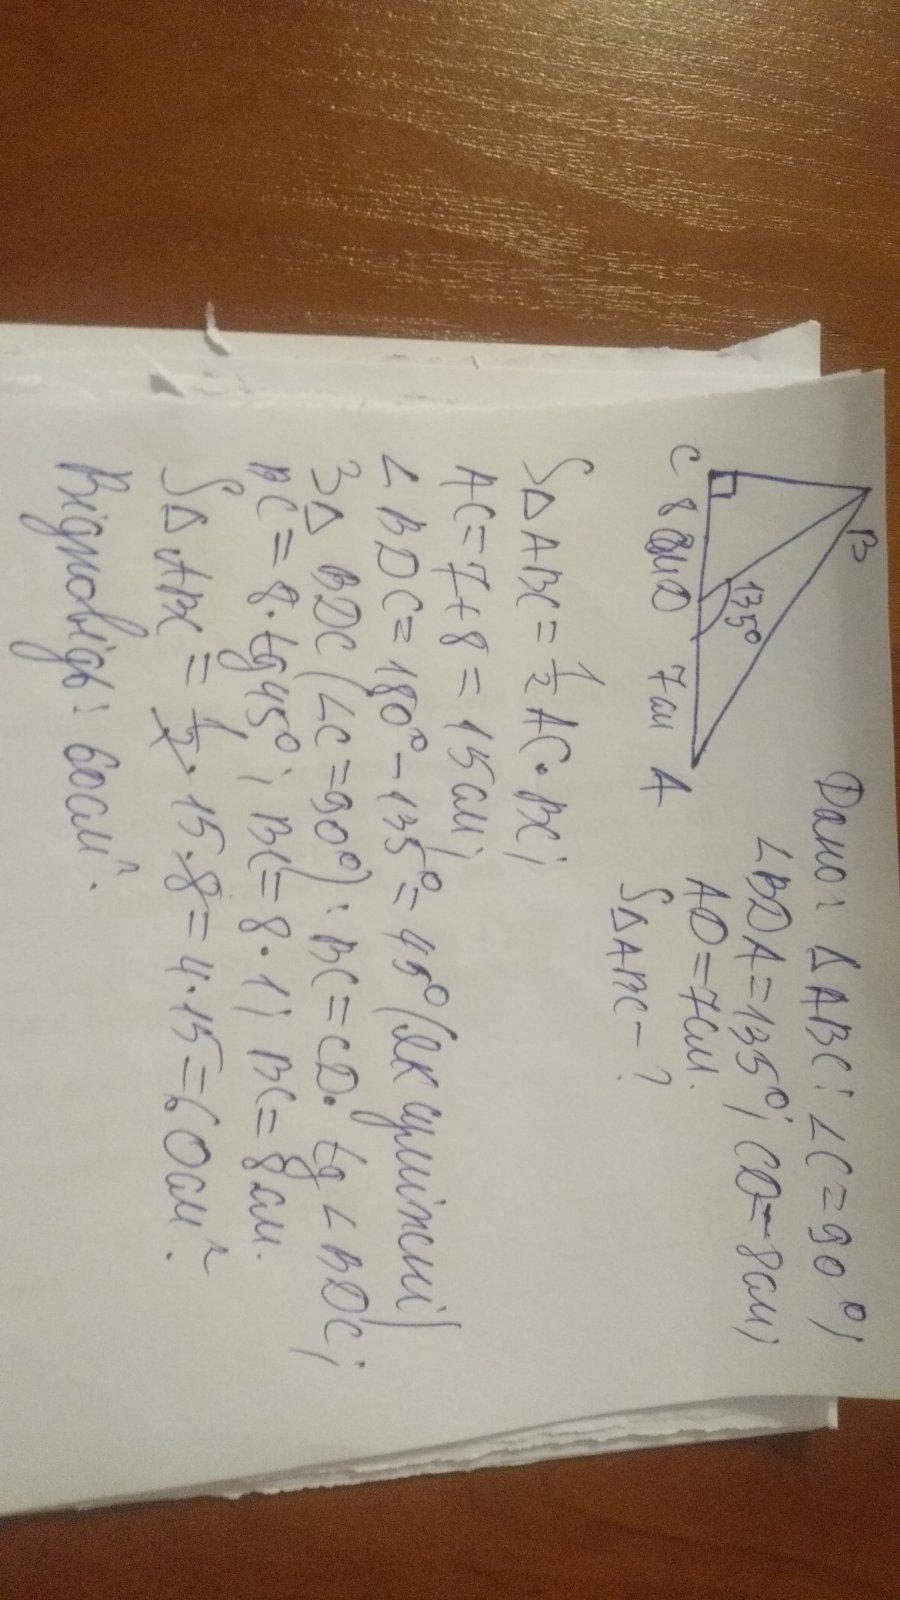 B
135°
C 8см D 7см A
Дано: ΔABC: ∠C=90°;
∠BDA=135°; CD=8см;
AD=7см.
SΔABC-?
SΔABC=1/2 AC·BC;
AC=7+8=15см;
∠BDC=180°-135°=45° (як суміжні)
З Δ BDC (∠C=90°): BC=CD·tg∠BDC;
BC=8·tg45°; BC=8·1; BC=8см.
SΔABC=1/2·15·8=4·15=60см².
Відповідь: 60см².